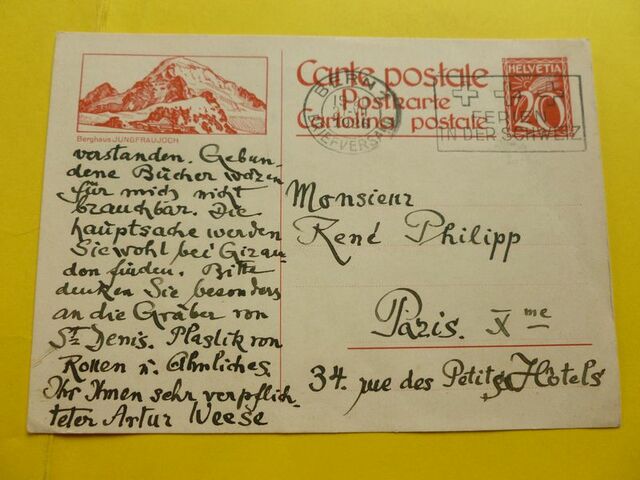 Carte postale
Postkarte
Cartolina postale
HELVETIA
20
BERN
BRIEFVERSAND
IN DER SCHWEIZ
Berghaus JUNGFRAUJOCH
verstanden. Gebun-
dene Bücher wären
für mich nicht
brauchbar. Die
Hauptsache werden
Sie wohl bei Girau-
don finden. Bitte
denken Sie besonders
an die Gräber von
St. Denis. Plastik von
Rouen u. Ähnliches.
Ihr Ihnen sehr verpflich-
teter Artur Weese
Monsieur
René Philipp
Paris. X me
34. rue des Petits Hôtels